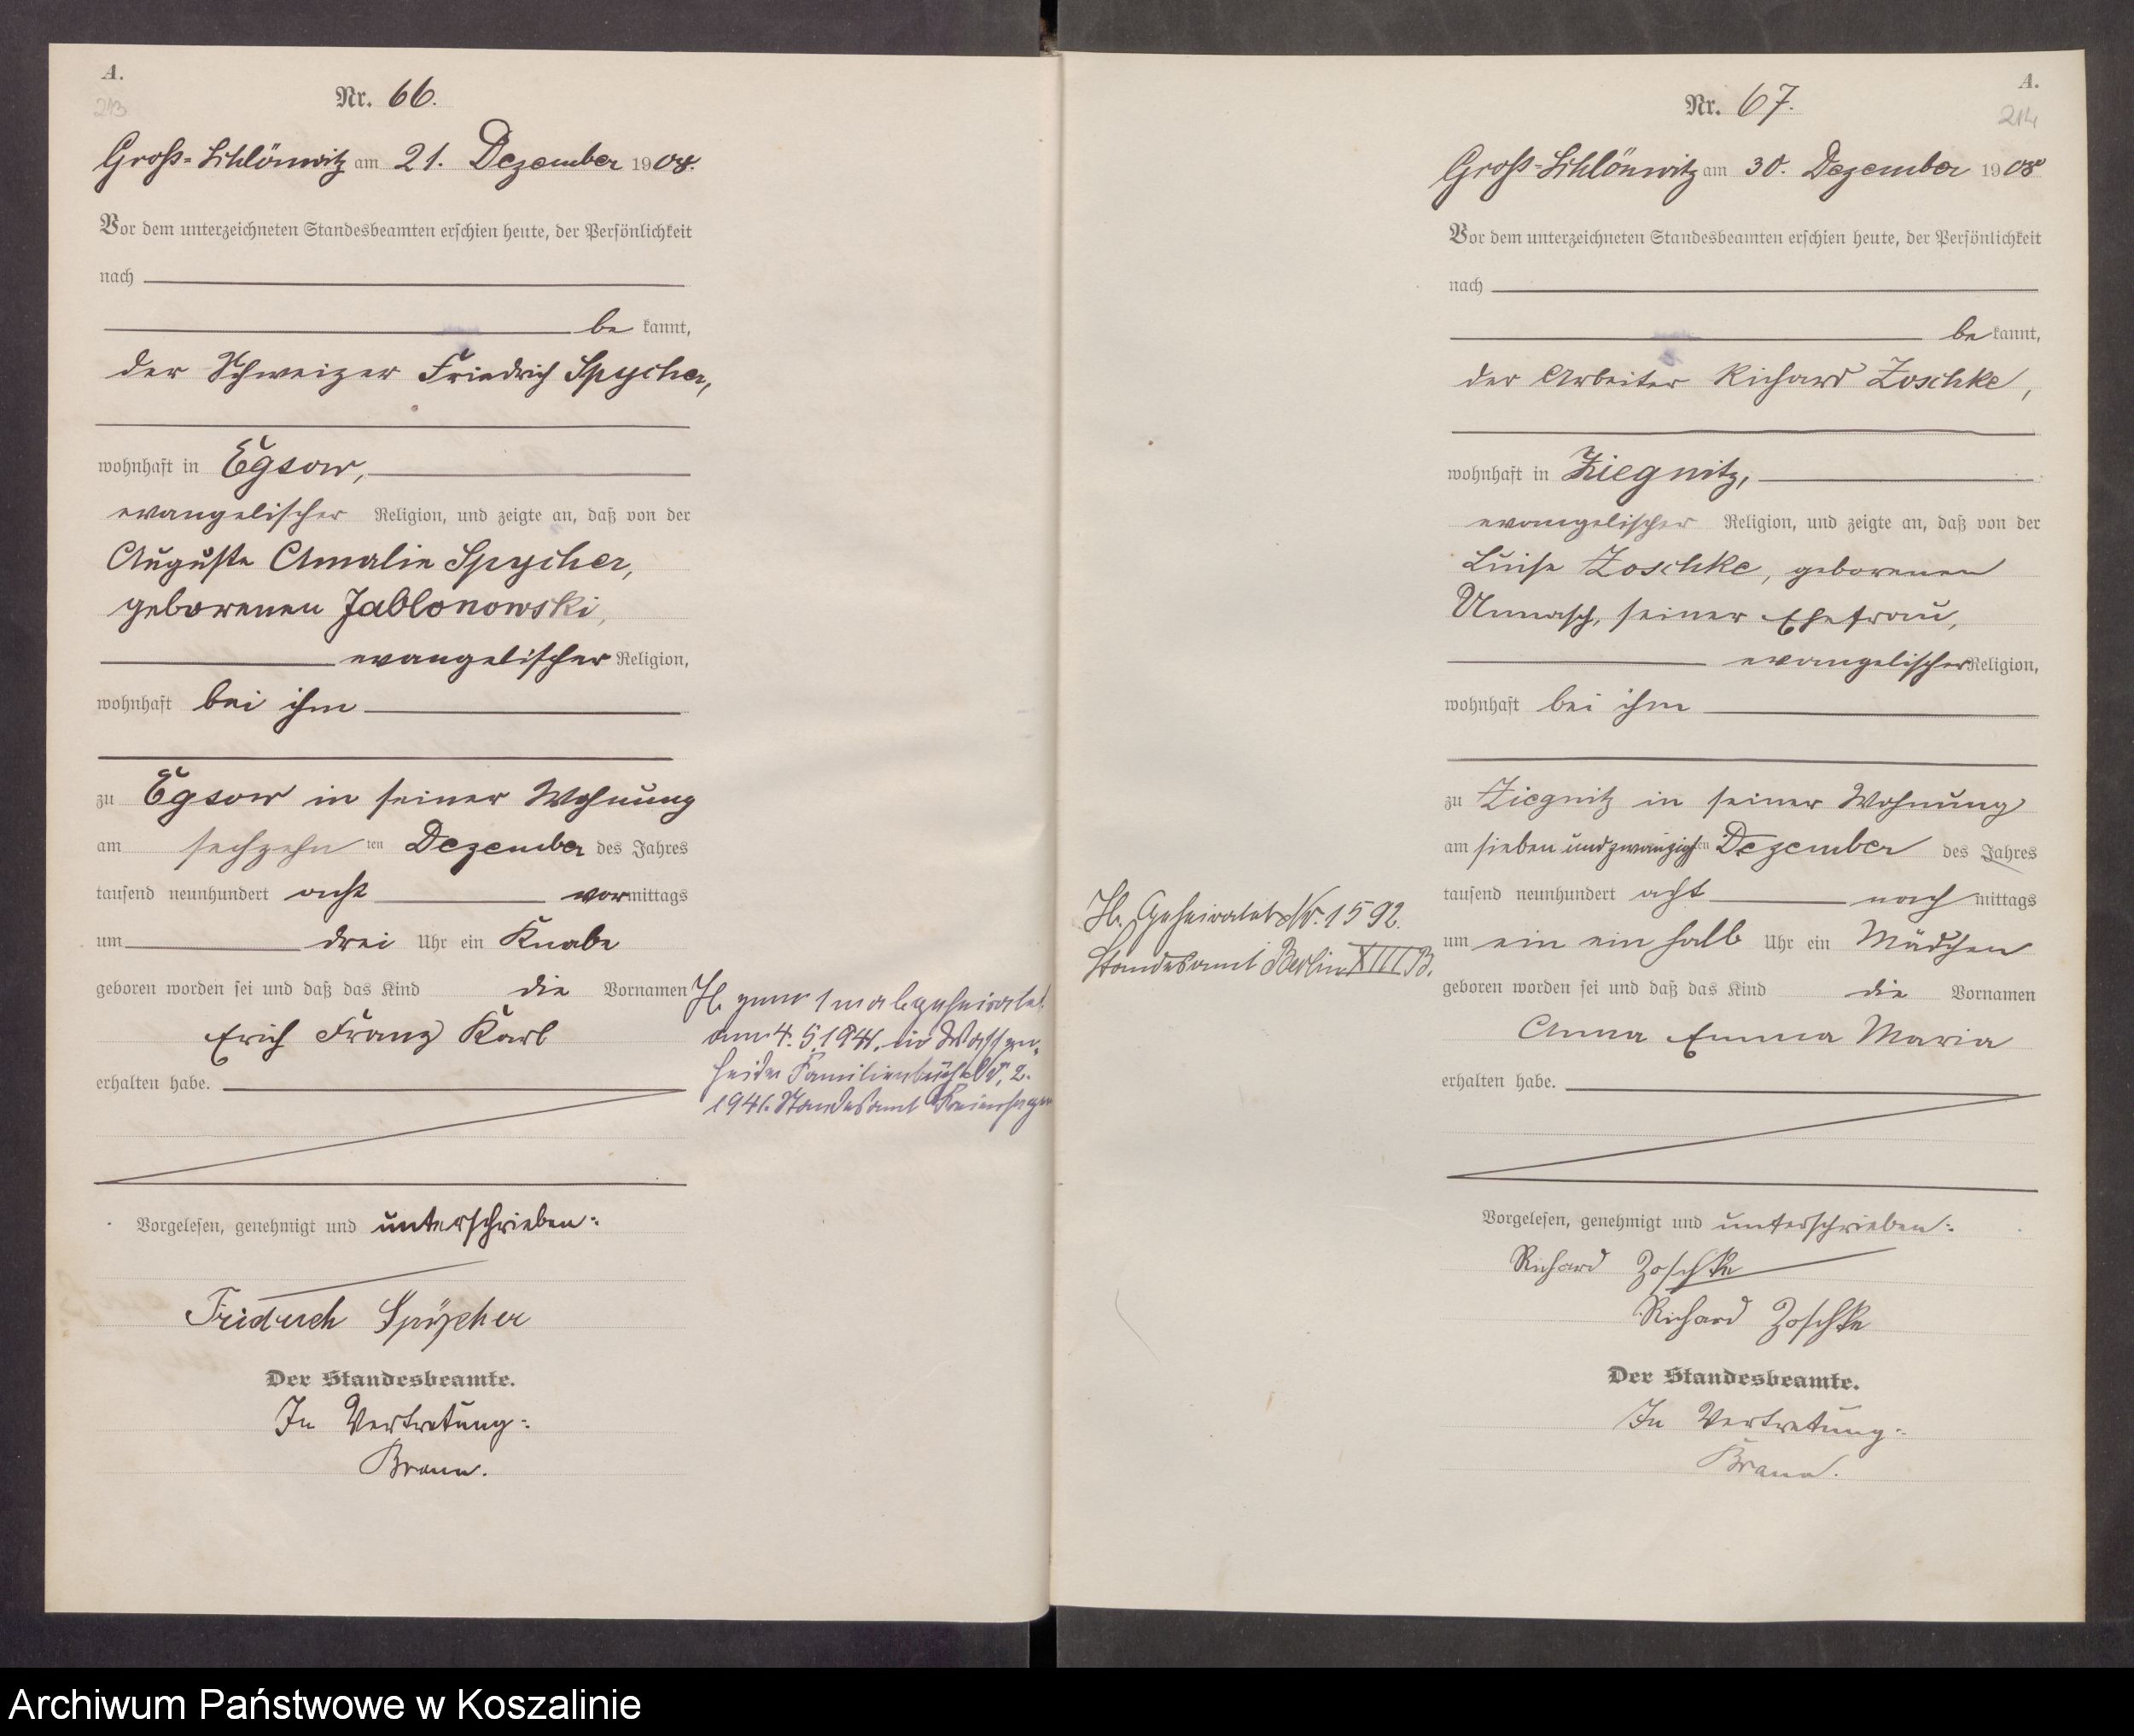 A.
213
Nr. 66.
Groß-Schlönwitz am 21. Dezember 1908.
Vor dem unterzeichneten Standesbeamten erschien heute, der Persönlichkeit
nach
be kannt,
der Schweizer Friedrich Spycher,
wohnhaft in Egsow,
evangelischer Religion, und zeigte an, daß von der
Auguste Amalie Spycher,
geborenen Jablonowski,
evangelischer Religion,
wohnhaft bei ihm
zu Egsow in seiner Wohnung
am sechzehn ten Dezember des Jahres
tausend neunhundert acht vormittags
um drei Uhr ein Knabe
geboren worden sei und daß das Kind die Vornamen
Erich Franz Karl
erhalten habe.
Vorgelesen, genehmigt und unterschrieben:
Fridrich Spÿcher
Der Standesbeamte.
In Vertretung:
Braun.
H. zum 1 mal geheiratet
am 4. 5. 1941. in
heide Familienbuch Nr. 2.
1941. Standesamt
A.
214
Nr. 67.
Groß-Schlönwitz am 30. Dezember 1908
Vor dem unterzeichneten Standesbeamten erschien heute, der Persönlichkeit
nach
be kannt,
der Arbeiter Richard Zoschke,
wohnhaft in Ziegnitz,
evangelischer Religion, und zeigte an, daß von der
Luise Zoschke, geborenen
Unnasch, seiner Ehefrau,
evangelischer Religion,
wohnhaft bei ihm
zu Ziegnitz in seiner Wohnung
am sieben und zwanzigsten Dezember des Jahres
tausend neunhundert acht nachmittags
um ein ein halb Uhr ein Mädchen
geboren worden sei und daß das Kind die Vornamen
Anna Emma Maria
erhalten habe.
Vorgelesen, genehmigt und unterschrieben:
Richard Zoschke
Richard Zoschke
Der Standesbeamte.
In Vertretung:
Braun.
H. Geheiratet Nr. 1592.
Standesamt Berlin XIII B.
Archiwum Państwowe w Koszalinie